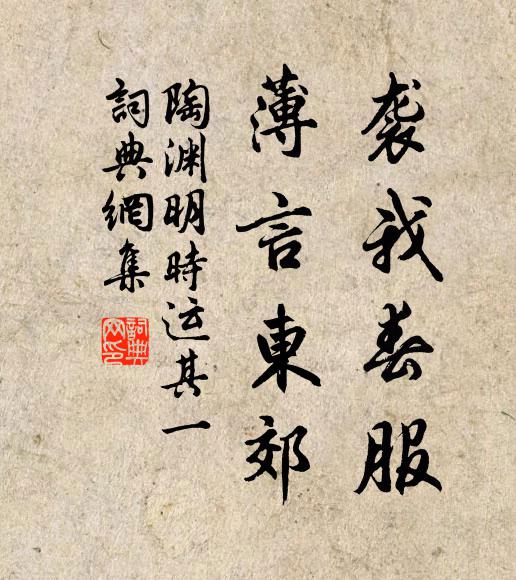 袭我春服
薄言東郊
陶渊明時运其一
詞典網集
詞典
网印